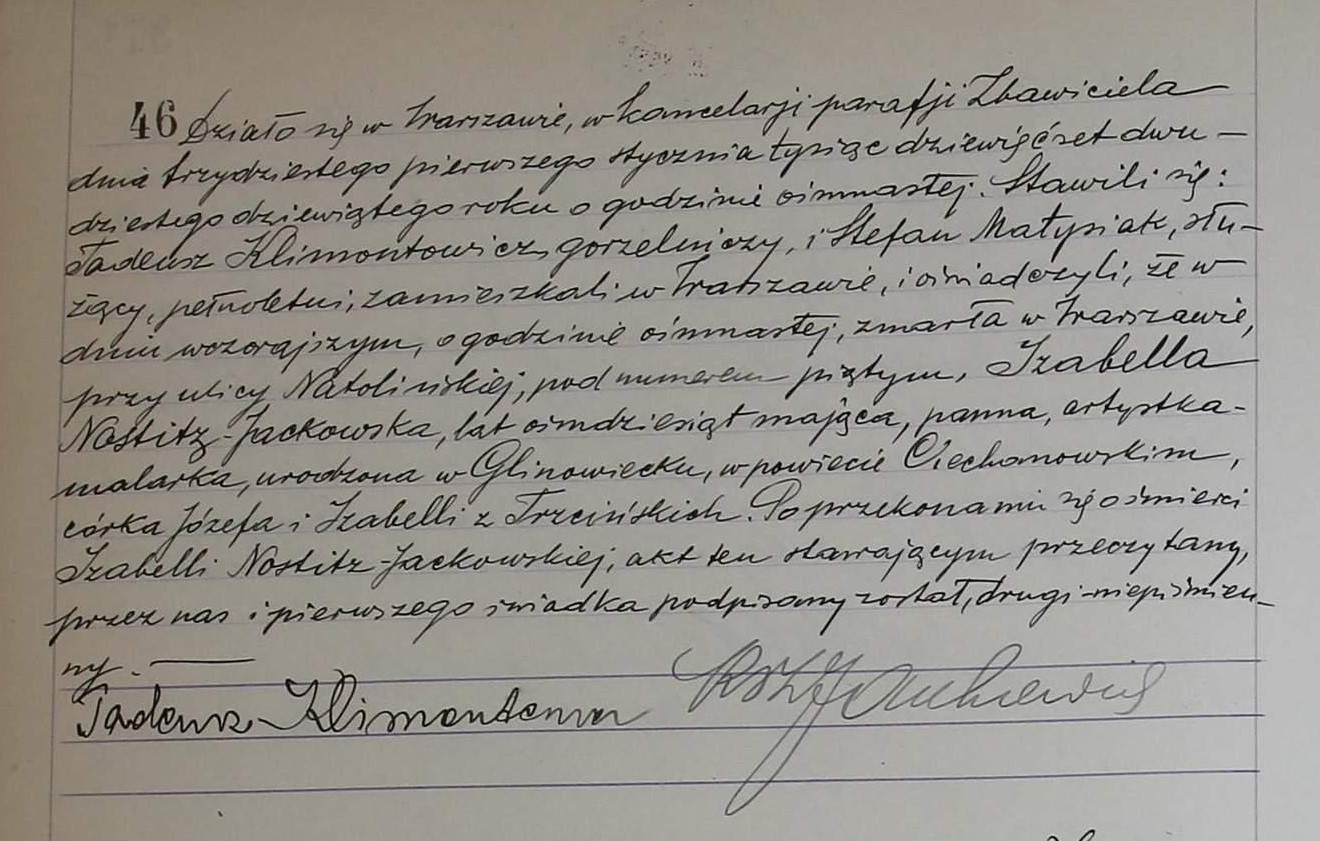 46 Działo się w Warszawie, w kancelarji parafji Zbawiciela
dnia trzydziestego pierwszego stycznia tysiąc dziewięćset dwu-
dziestego dziewiątego roku o godzinie ósmnastej. Stawili się:
Tadeusz Klimontowicz, gorzelniczy, i Stefan Małysiak, słu-
żący, pełnoletni, zamieszkali w Warszawie, i oświadczyli, że w
dniu wczorajszym, o godzinie ósmnastej, zmarła w Warszawie,
przy ulicy Natolińskiej, pod numerem piątym, Izabella
Nostitz-Jackowska, lat ośmdziesiąt mająca, panna, artystka-
malarka, urodzona w Glinowiecku, w powiecie Ciechanowskim,
córka Józefa i Izabelli z Trzcińskich. Po przekonaniu się o śmierci
Izabelli Nostitz-Jackowskiej, akt ten stawającym przeczytany,
przez nas i pierwszego świadka podpisany został, drugi-niepiśmien-
ny.
Tadeusz Klimontowicz